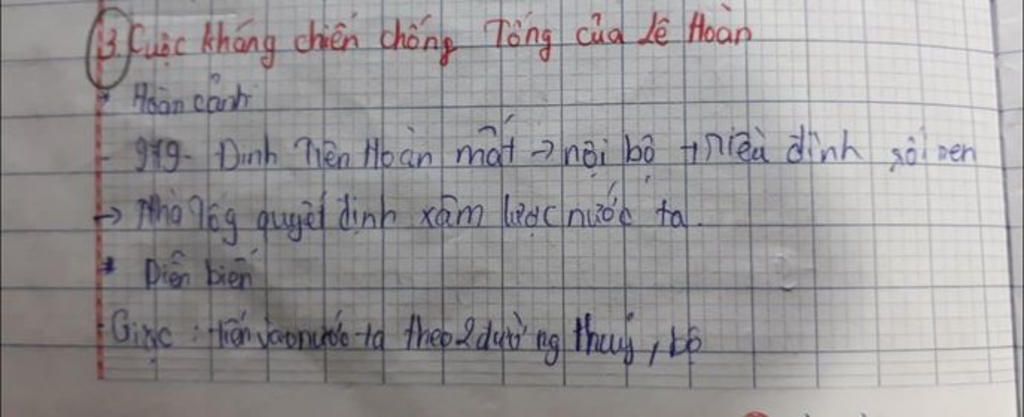 3. Cuộc kháng chiến chống Tống của Lê Hoàn
* Hoàn cảnh
- 979- Đinh Tiên Hoàn mất → nội bộ triều đình rối ren
→ Nhà Tống quyết định xâm lược nước ta.
* Diễn biến
- Giặc : tiến vào nước ta theo 2 đường thuỷ, bộ